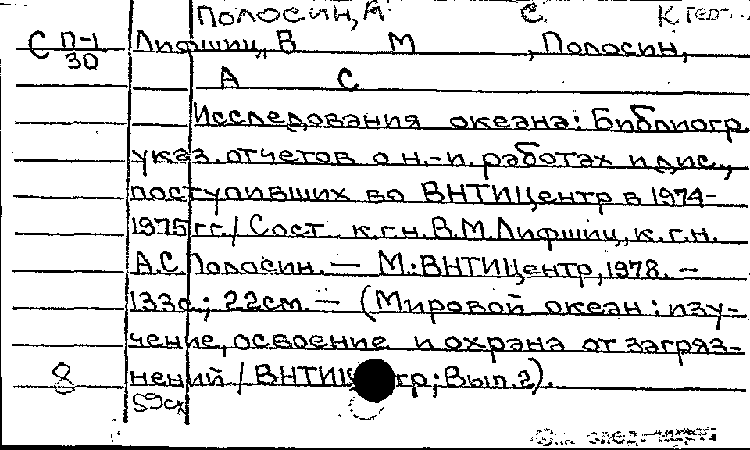 Полосин, А. С.
С П-1 Лифшиц, В М , Полосин,
30
А С
Исследования океана: Библиогр.
указ. отчетов о н.-и. работах и дис.,
поступивших во ВНТИЦентр в 1974-
1975 гг./ Сост. к.г.н. В.М. Лифшиц, к.г.н.
А.С. Полосин. — М.: ВНТИЦентр, 1978. —
133с.; 22см. — (Мировой океан: изу-
чение, освоение и охрана от загряз-
8 нений / ВНТИЦентр; Вып. 2).